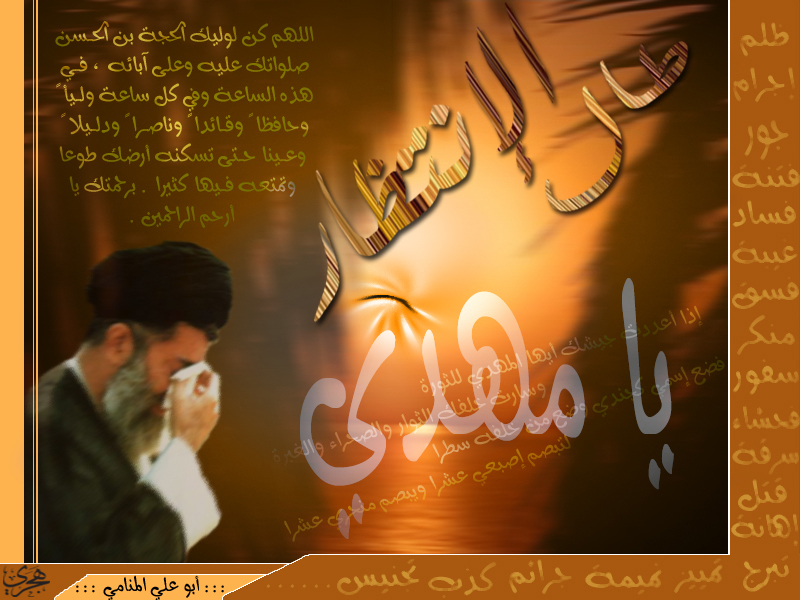 اللهم كن لوليك الحجة بن الحسن
صلواتك عليه وعلى آبائه ، في
هذه الساعة وفي كل ساعة ولياً
وحافظاً وقائداً وناصراً ودليلاً
وعينا حتى تسكنه أرضك طوعا
وتمتعه فيها كثيرا . برحمتك يا
ارحم الراحمين .
طال الإنتظار
يا مهدي
إذا اعددت جيشك ايها المهدي للثورة
وسارت خلفك الثوار والصحراء والغبرة
فضع إسمي كجندي وضع من خلفه سطرا
لتبصم إصبعي عشرا ويبصم منحري عشرا
ظلم
إجرام
جور
فتنة
فساد
غيبة
فسق
منكر
سفور
فحشاء
سرقة
قتل
إهانة
تبرج
نميمة جرائم كذب تجنيس ......
::: أبو علي المنامي :::
هجري